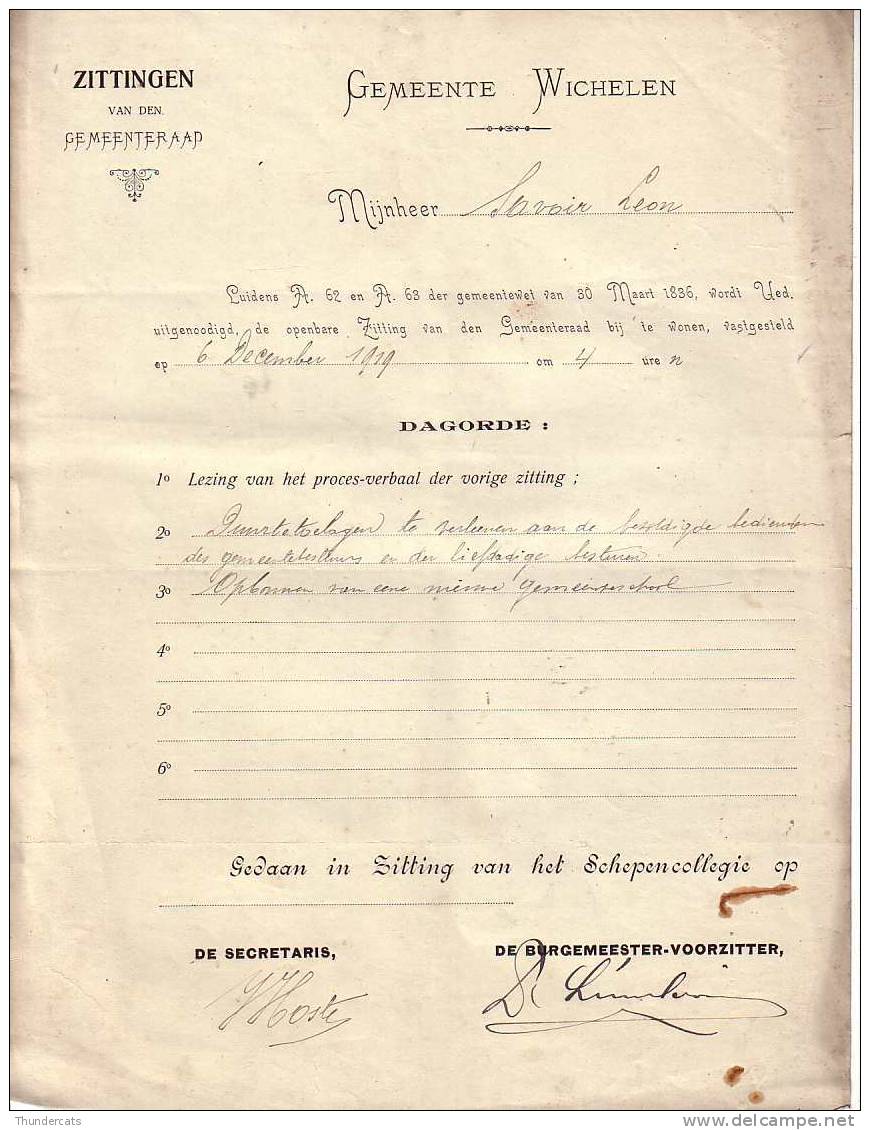 ZITTINGEN
VAN DEN
GEMEENTERAAD
GEMEENTE WICHELEN
Mijnheer Savoir Leon
Luidens A. 62 en A. 63 der gemeentewet van 30 Maart 1836, wordt Ued.
uitgenoodigd, de openbare Zitting van den Gemeenteraad bij te wonen, vastgesteld
op 6 December 1919 om 4 uren
DAGORDE :
1º Lezing van het proces-verbaal der vorige zitting ;
2º Duurtetoelagen te verleenen aan de bezoldigde bedienden
des gemeentebestuurs en der liefdadige besturen.
3º Opbouwen van eene nieuwe gemeenteschool
4º
5º
6º
Gedaan in Zitting van het Schepencollegie op
DE SECRETARIS,
DE BURGEMEESTER-VOORZITTER,
Thundercats
delcampe.net